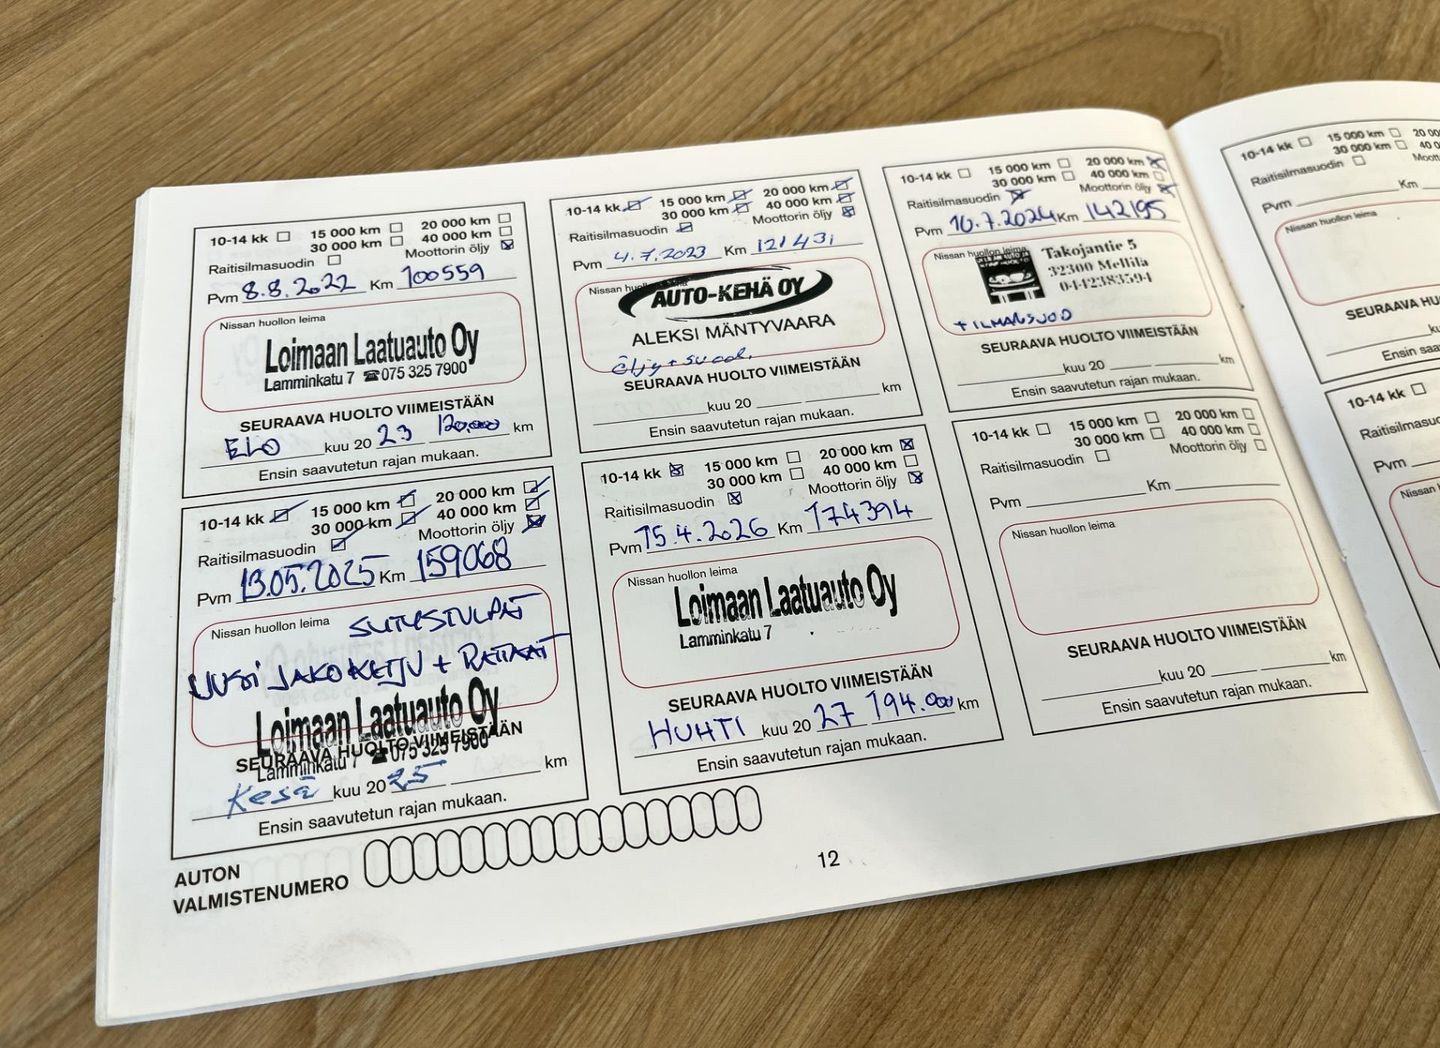 10-14 kk 15 000 km 20 000 km
30 000 km 40 000 km
Raitisilmasuodin Moottorin öljy
Pvm 8.8.2022 Km 100559
Nissan huollon leima
Loimaan Laatuauto Oy
Lamminkatu 7 ☎075 325 7900
SEURAAVA HUOLTO VIIMEISTÄÄN
ELO kuu 20 23 120.000 km
Ensin saavutetun rajan mukaan.
10-14 kk 15 000 km 20 000 km
30 000 km 40 000 km
Raitisilmasuodin Moottorin öljy
Pvm 4.7.2023 Km 121431
Nissan huollon leima
AUTO-KEHÄ OY
ALEKSI MÄNTYVAARA
öljy + suod.
SEURAAVA HUOLTO VIIMEISTÄÄN
kuu 20 km
Ensin saavutetun rajan mukaan.
10-14 kk 15 000 km 20 000 km
30 000 km 40 000 km
Raitisilmasuodin Moottorin öljy
Pvm 10.7.2024 Km 142195
Nissan huollon leima
Takojantie 5
32300 Mellilä
0442383594
+ ILMANSUOD
SEURAAVA HUOLTO VIIMEISTÄÄN
kuu 20 km
Ensin saavutetun rajan mukaan.
10-14 kk 15 000 km 20 000 km
30 000 km 40 000 km
Raitisilmasuodin Moottorin öljy
Pvm 13.05.2025 Km 159068
Nissan huollon leima SYTYSTULPAT
UUSI JAKOKETJU + RATTAAT
Loimaan Laatuauto Oy
SEURAAVA HUOLTO VIIMEISTÄÄN
Lamminkatu 7 ☎075 325 7900
Kesä kuu 20 25 km
Ensin saavutetun rajan mukaan.
10-14 kk 15 000 km 20 000 km
30 000 km 40 000 km
Raitisilmasuodin Moottorin öljy
Pvm 15.4.2026 Km 174394
Nissan huollon leima
Loimaan Laatuauto Oy
Lamminkatu 7
SEURAAVA HUOLTO VIIMEISTÄÄN
HUHTI kuu 20 27 194.000 km
Ensin saavutetun rajan mukaan.
10-14 kk 15 000 km 20 000 km
30 000 km 40 000 km
Raitisilmasuodin Moottorin öljy
Pvm Km
Nissan huollon leima
SEURAAVA HUOLTO VIIMEISTÄÄN
kuu 20 km
Ensin saavutetun rajan mukaan.
AUTON
VALMISTENUMERO
12
10-14 kk 15 000 km
30 000 km
Raitisilmasuodin
Pvm Km
Nissan huollon leima
SEURAAVA
kuu
Ensin
10-14 kk
Pvm
Nissan